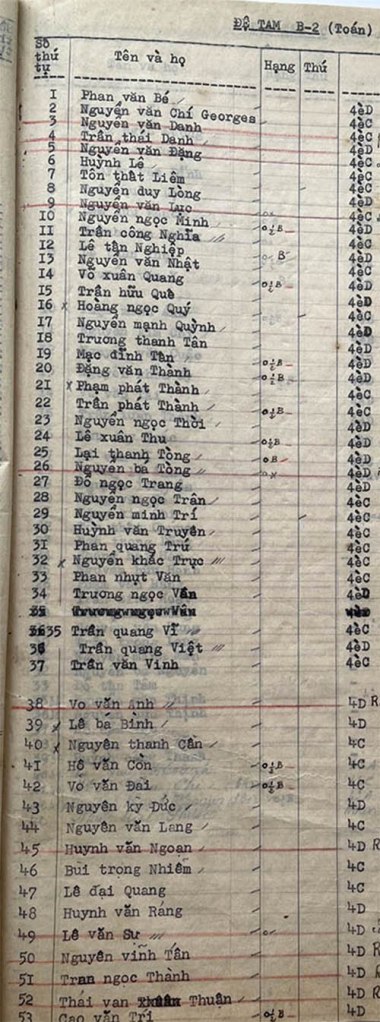 ĐỆ TAM B-2 (Toán)
Số thứ tự Tên và họ Hạng Thú
1 Phan văn Bé 4èD
2 Nguyễn văn Chí Georges 4èC
3 Nguyễn văn Danh 4èD
4 Trần thái Danh 4èC
5 Nguyễn văn Đặng 4èD
6 Huỳnh Lê 4èC
7 Tôn thất Liêm 4èC
8 Nguyễn duy Lòng 4èD
9 Nguyễn văn Lục 4èD
10 Nguyễn ngọc Minh 4èC
11 Trần công Nghĩa 4èD
12 Lê tấn Nghiệp 4èC
13 Nguyễn văn Nhật 4èD
14 Võ xuân Quang 4èC
15 Trần hữu Quê 4èD
16 x Hoàng ngọc Quý 4èD
17 Nguyễn mạnh Quỳnh 4èC
18 Trương thanh Tân 4èD
19 Mạc đình Tân 4èD
20 Đặng văn Thành 4èD
21 x Phạm phát Thành 4èC
22 Trần phát Thành 4èC
23 Nguyễn ngọc Thời 4èD
24 Lê xuân Thu 4èD
25 Lại thanh Tòng 4èD
26 Nguyễn bá Tòng 4èD
27 Đỗ ngọc Trang 4èD
28 Nguyễn ngọc Trân 4èC
29 Nguyễn minh Trí 4èC
30 Huỳnh văn Truyên 4èC
31 Phan quang Trứ 4èC
32 x Nguyễn khắc Trực 4èC
33 Phan nhựt Văn 4èC
34 Trương ngọc Vân 4èD
35 Trần quang Vĩ 4èC
36 Trần quang Việt 4èD
37 Trần văn Vinh 4èC
38 Vo văn Anh 4D R
39 x Lê bá Bình 4D
40 x Nguyên thanh Cần 4C
41 Hồ văn Còn 4C
42 Võ văn Đai 4C
43 Nguyên ky Đức 4D
44 Nguyên văn Lang 4C
45 Huynh văn Ngoạn 4D R
46 Bùi trong Nhiễm 4C
47 Lê đại Quang 4C
48 Huynh văn Ráng 4D
49 Lê văn Sư 4D
50 Nguyên vĩnh Tấn 4D R
51 Tran ngoc Thành 4D R
52 Thái van Thuận 4D R
53 Cao văn Trí 4D